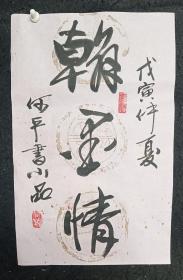 翰墨情
戊寅仲夏
何平書小品